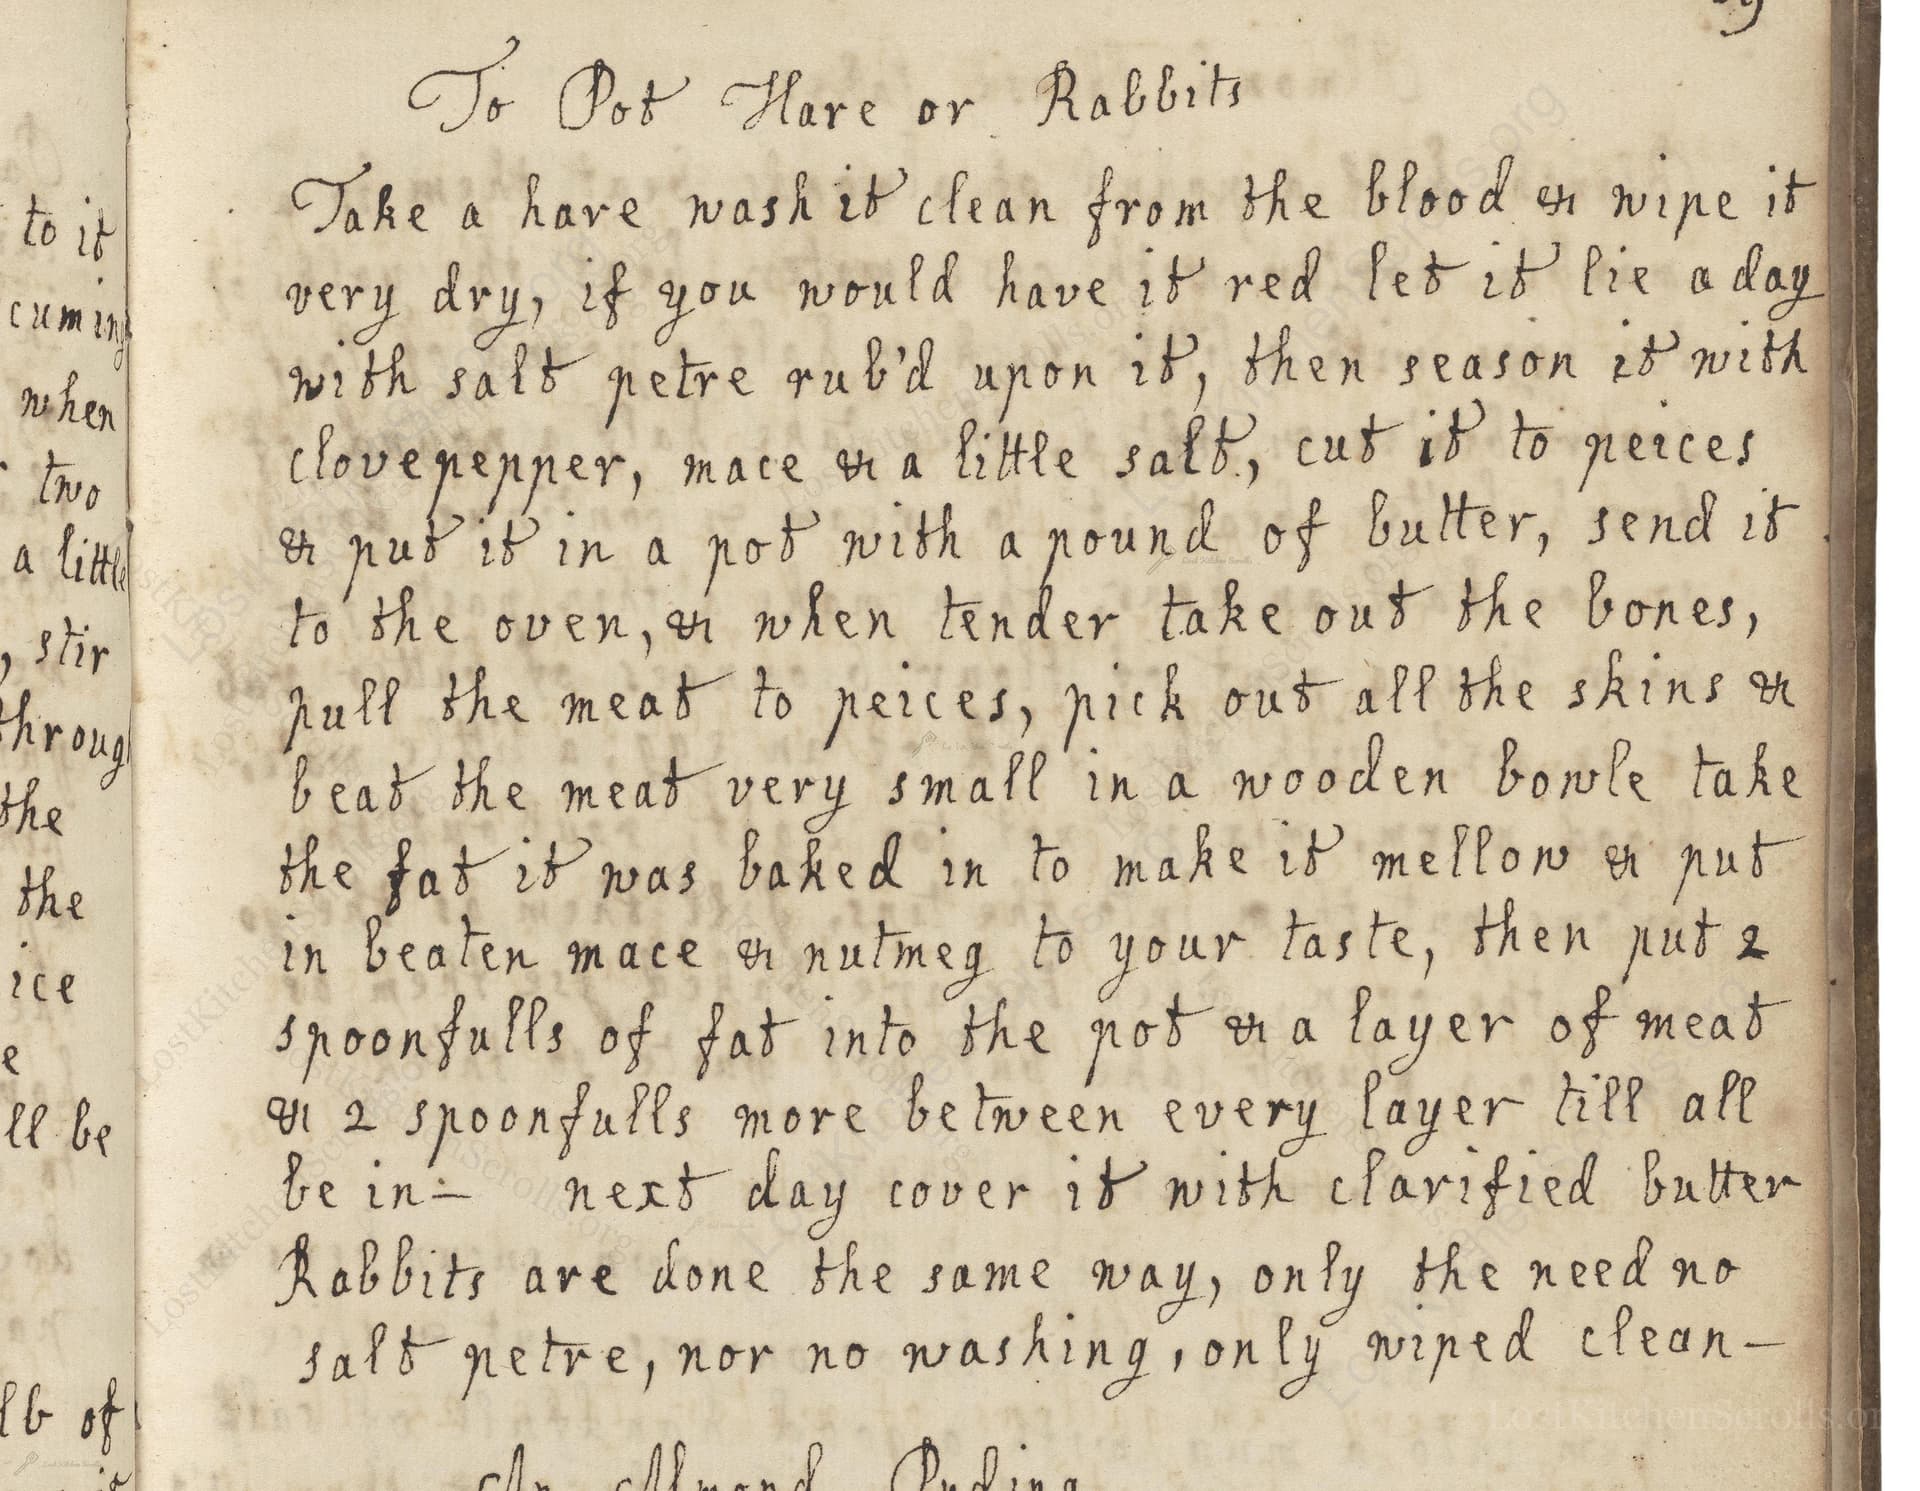 to it
cuming
when
two
a little
, stir
throug
the
the
ice
e
ll be
lb of
To Pot Hare or Rabbits
Take a hare wash it clean from the blood & wipe it
very dry, if you would have it red let it lie a day
with salt petre rub'd upon it, then season it with
clovepepper, mace & a little salt, cut it to peices
& put it in a pot with a pound of butter, send it
to the oven, & when tender take out the bones,
pull the meat to peices, pick out all the skins &
beat the meat very small in a wooden bowle take
the fat it was baked in to make it mellow & put
in beaten mace & nutmeg to your taste, then put 2
spoonfulls of fat into the pot & a layer of meat
& 2 spoonfulls more between every layer till all
be in— next day cover it with clarified butter
Rabbits are done the same way, only the need no
salt petre, nor no washing, only wiped clean—
An Almond Puding
LostKitchenScrolls.or